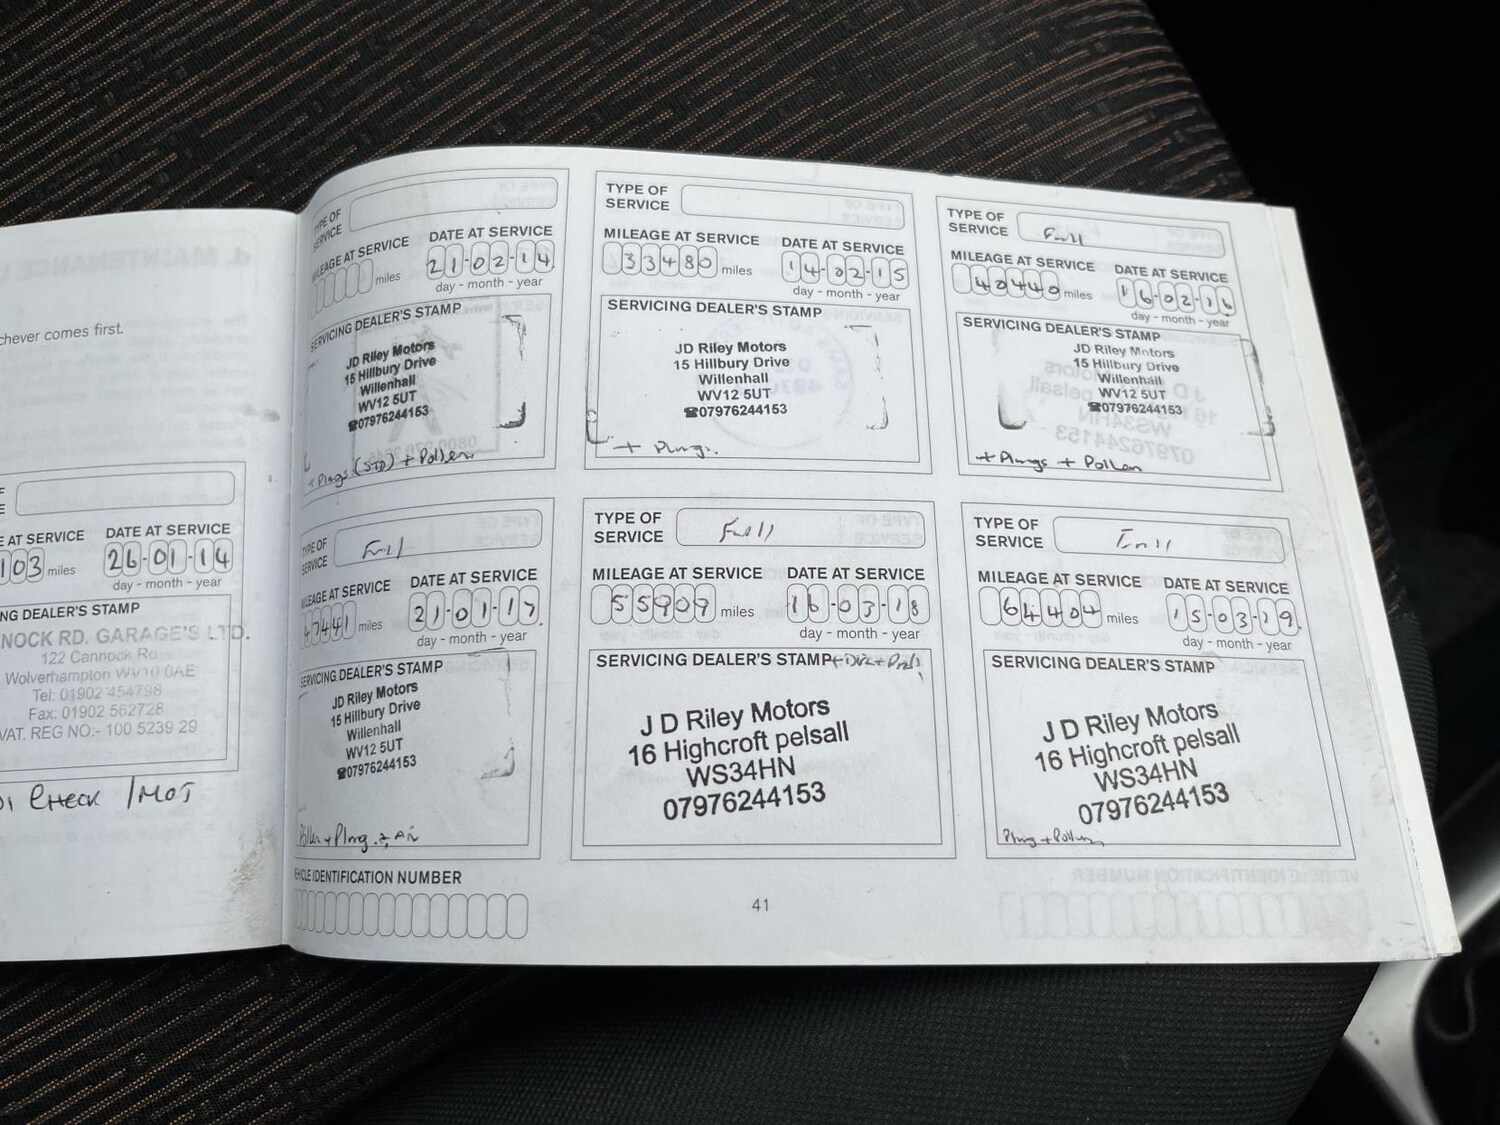 chever comes first.
E AT SERVICE DATE AT SERVICE
103 miles 26-01-14
day - month - year
NG DEALER'S STAMP
NOCK RD. GARAGE'S LTD.
122 Cannock Rd
Wolverhampton WV10 0AE
Tel: 01902 454798
Fax: 01902 562728
VAT. REG NO:- 100 5239 29
CHECK / MOT
TYPE OF
SERVICE
MILEAGE AT SERVICE DATE AT SERVICE
miles 21-02-14
day - month - year
SERVICING DEALER'S STAMP
JD Riley Motors
15 Hillbury Drive
Willenhall
WV12 5UT
☎07976244153
+ Plugs (STD) + Pollen
TYPE OF
SERVICE
MILEAGE AT SERVICE DATE AT SERVICE
33480 miles 14-02-15
day - month - year
SERVICING DEALER'S STAMP
JD Riley Motors
15 Hillbury Drive
Willenhall
WV12 5UT
☎07976244153
+ Plugs.
TYPE OF
SERVICE Full
MILEAGE AT SERVICE DATE AT SERVICE
40440 miles 16-02-16
day - month - year
SERVICING DEALER'S STAMP
JD Riley Motors
15 Hillbury Drive
Willenhall
WV12 5UT
☎07976244153
+ Plugs + Pollen
TYPE OF
SERVICE Full
MILEAGE AT SERVICE DATE AT SERVICE
47441 miles 21-01-17
day - month - year
SERVICING DEALER'S STAMP
JD Riley Motors
15 Hillbury Drive
Willenhall
WV12 5UT
☎07976244153
Pollen + Plug + Air
TYPE OF
SERVICE Full
MILEAGE AT SERVICE DATE AT SERVICE
55909 miles 16-03-18
day - month - year
SERVICING DEALER'S STAMP
J D Riley Motors
16 Highcroft pelsall
WS34HN
07976244153
TYPE OF
SERVICE Full
MILEAGE AT SERVICE DATE AT SERVICE
64404 miles 15-03-19
day - month - year
SERVICING DEALER'S STAMP
J D Riley Motors
16 Highcroft pelsall
WS34HN
07976244153
Plug + Pollen
HICLE IDENTIFICATION NUMBER
41